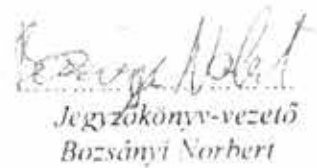 Jegyzőkönyv-vezető
Bozsányi Norbert